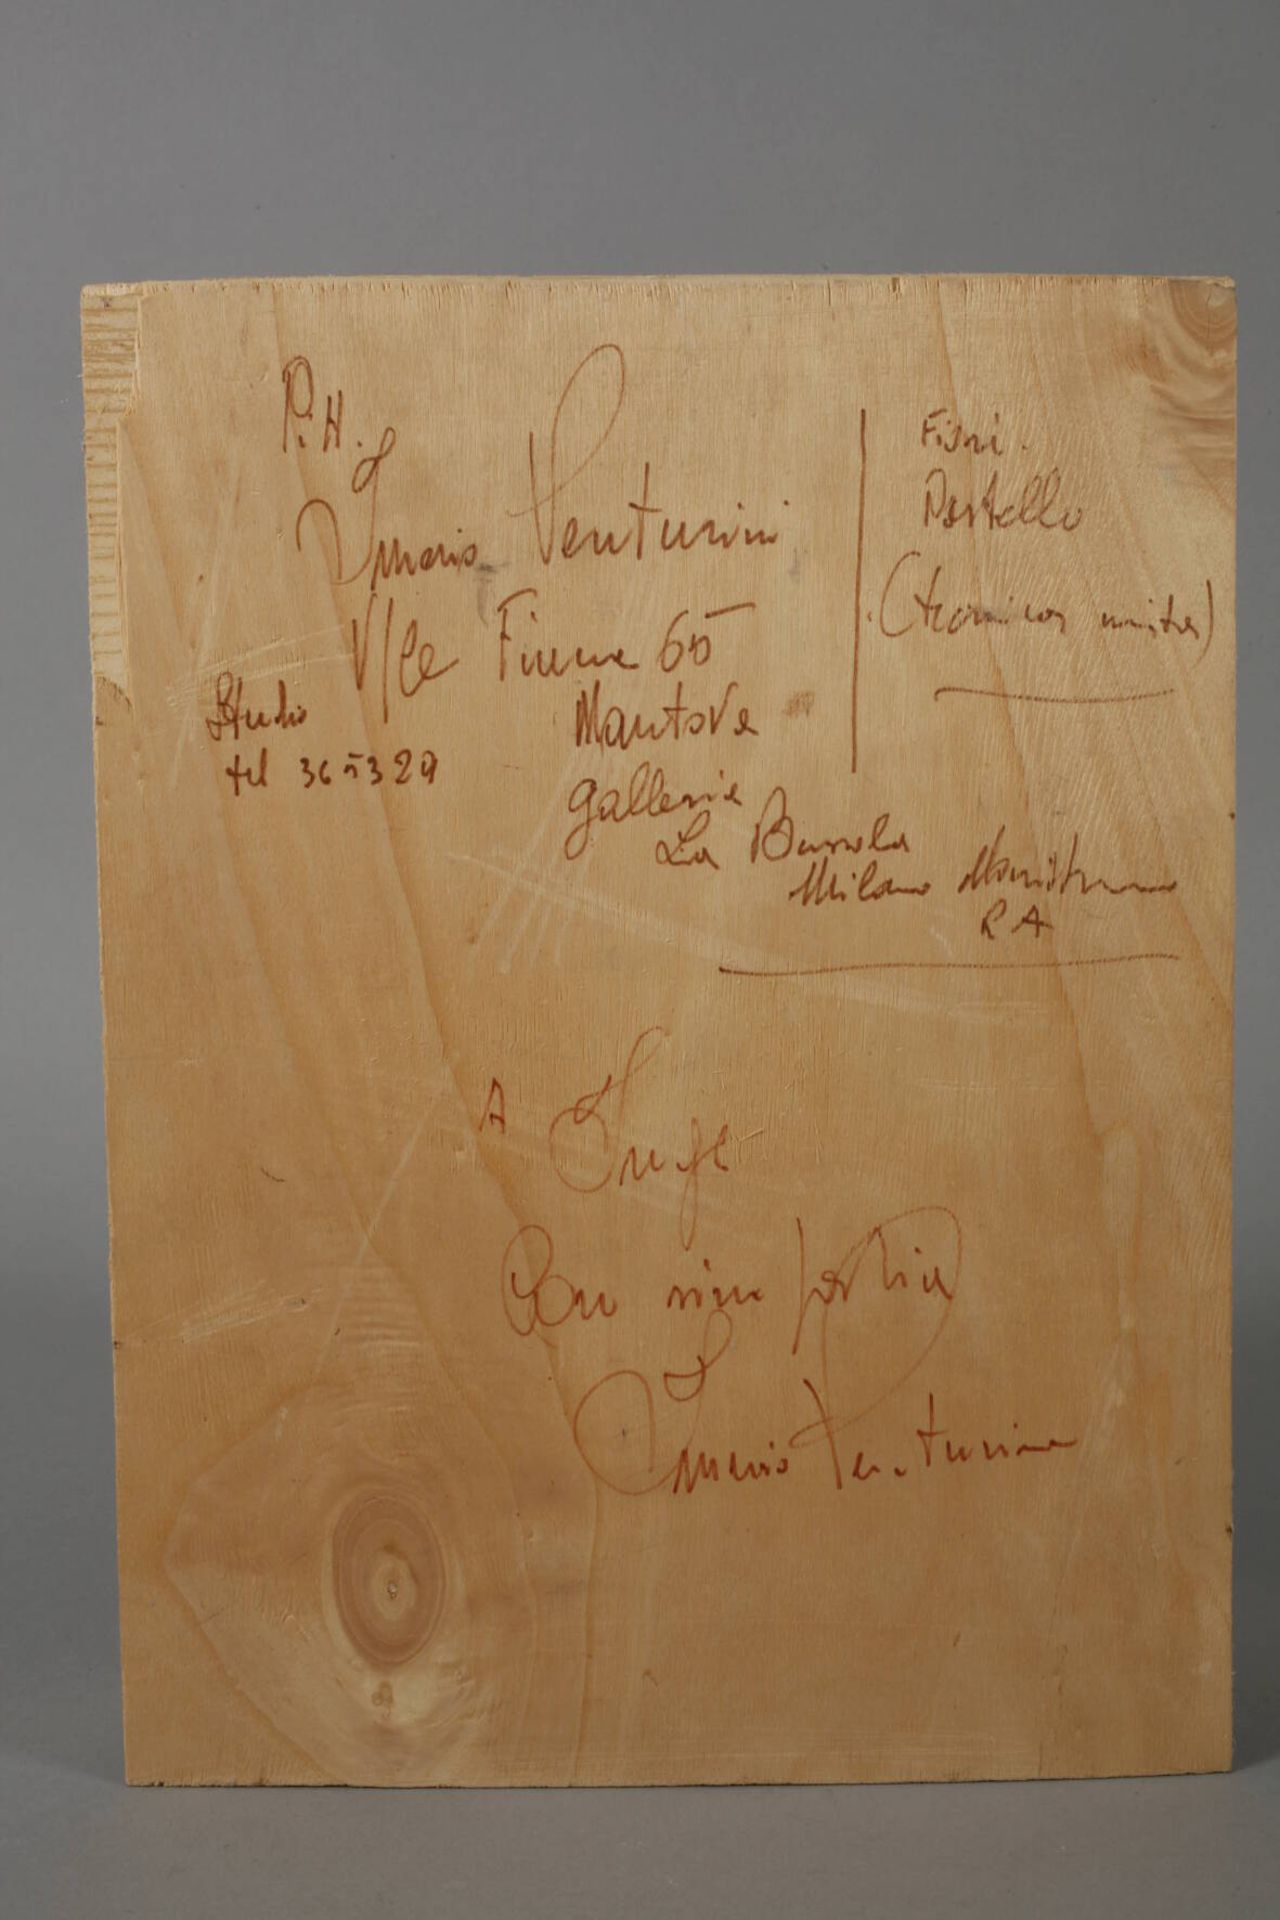 P.H.
Imerio Venturini
V/le Fiume 65
Mantova
Studio
tel 365329
Galleria
La Bussola
Milano Marittima
RA
Fiori.
Pastello
(tecnica mista)
A Inge
Con simpatia
Imerio Venturini